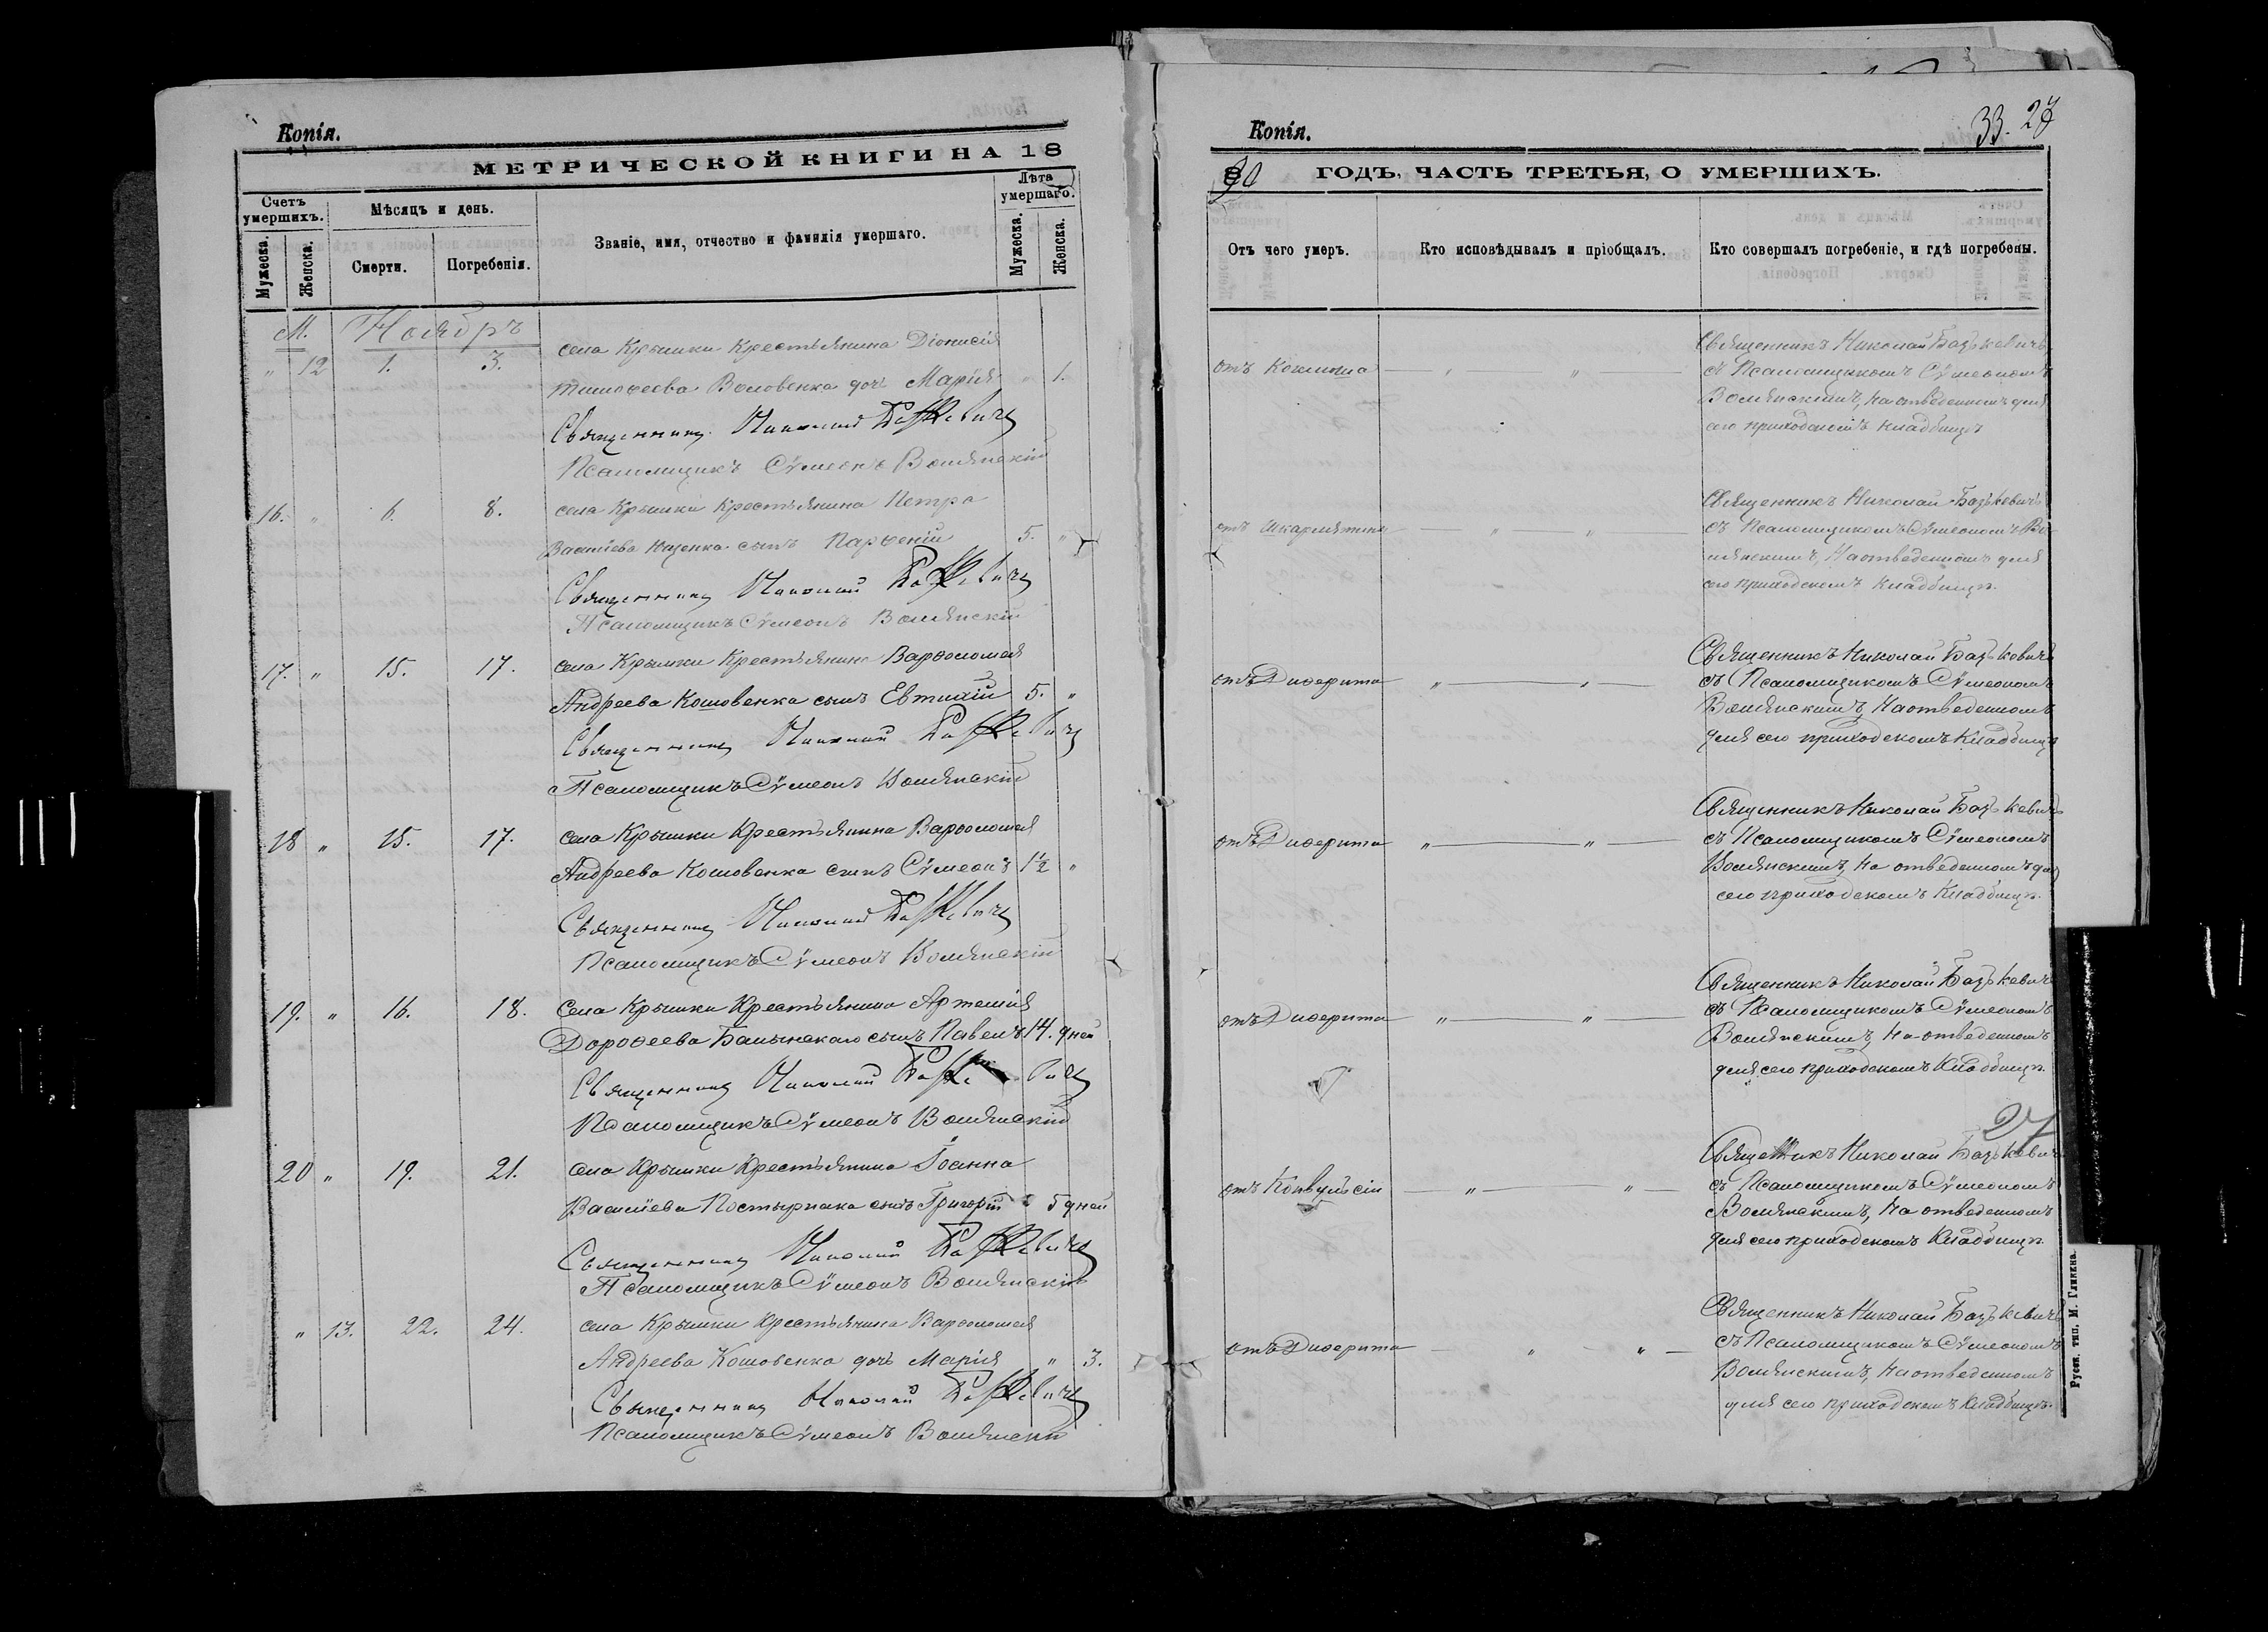 Копія.
МЕТРИЧЕСКОЙ КНИГИ НА 18
Счетъ умершихъ.
Мѣсяцъ и день.
Званіе, имя, отчество и фамилія умершаго.
Лѣта умершаго.
Мужеска.
Женска.
Смерти.
Погребенія.
Мужеска.
Женска.
М. Ноябръ
" 12 1. 3. села Крымки Крестьянина Діонисія
Тимоѳеева Воловенка дочь Марія " 1.
Священникъ Николай Базкевичъ
Псаломщикъ Сѵмеонъ Волянскій
16. " 6. 8. села Крымки Крестьянина Петра
Василіева сынъ Парѳеній 5. "
Священникъ Николай Базкевичъ
Псаломщикъ Сѵмеонъ Волянскій
17. " 15. 17. села Крымки Крестьянина Варѳоломея
Андреева Кошовенка сынъ Евтихій 5. "
Священникъ Николай Базкевичъ
Псаломщикъ Сѵмеонъ Волянскій
18 " 15. 17. села Крымки Крестьянина Варѳоломея
Андреева Кошовенка сынъ Сѵмеонъ 1½ "
Священникъ Николай Базкевичъ
Псаломщикъ Сѵмеонъ Волянскій
19. " 16. 18. села Крымки Крестьянина Артемія
Дороѳеева сынъ Павелъ 14. дней
Священникъ Николай Базкевичъ
Псаломщикъ Сѵмеонъ Волянскій
20 " 19. 21. села Крымки Крестьянина Іоанна
Василіева Постырнака сынъ Григорій 5 дней
Священникъ Николай Базкевичъ
Псаломщикъ Сѵмеонъ Волянскій
" 13. 22. 24. села Крымки Крестьянина Варѳоломея
Андреева Кошовенка дочь Марія " 3.
Священникъ Николай Базкевичъ
Псаломщикъ Сѵмеонъ Волянскій
Копія.
33. 27
90 ГОДЪ, ЧАСТЬ ТРЕТЬЯ, О УМЕРШИХЪ.
Отъ чего умеръ.
Кто исповѣдывалъ и пріобщалъ.
Кто совершалъ погребеніе, и гдѣ погребены.
Священникъ Николай Базькевичъ
отъ Коклюша " " съ Псаломщикомъ Сѵмеономъ
Волянскимъ, на отведенномъ для
сего приходскомъ кладбищѣ
Священникъ Николай Базькевичъ
отъ Шкарлятины " " съ Псаломщикомъ Сѵмеономъ Во-
лянскимъ, На отведенномъ для
сего приходскомъ кладбищѣ.
Священникъ Николай Базькевичъ
отъ Диѳерита " " съ Псаломщикомъ Сѵмеономъ
Волянскимъ, На отведенномъ
для сего приходскомъ Кладбищѣ
Священникъ Николай Базькевичъ
отъ Диѳерита " " съ Псаломщикомъ Сѵмеономъ
Волянскимъ, На отведенномъ для
сего приходскомъ Кладбищѣ.
Священникъ Николай Базькевичъ
отъ Диѳерита " " съ Псаломщикомъ Сѵмеономъ
Волянскимъ, На отведенномъ
для сего приходскомъ Кладбищѣ.
27
Священникъ Николай Базькевичъ
отъ Конвульсіи " " съ Псаломщикомъ Сѵмеономъ
Волянскимъ, На отведенномъ
для сего приходскомъ Кладбищѣ.
Священникъ Николай Базькевичъ
отъ Диѳерита " " съ Псаломщикомъ Сѵмеономъ
Волянскимъ, На отведенномъ
для сего приходскомъ Кладбищѣ.
Русск. тип. М. Гликина.